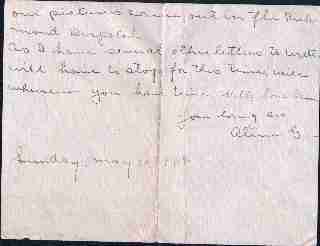 our pictures coming out in the Rich
mond Despatch.
As I have several other letters to write
will have to stop for this time
whenever you have time. With love
Your loving sis
Alma G.
Sunday, May